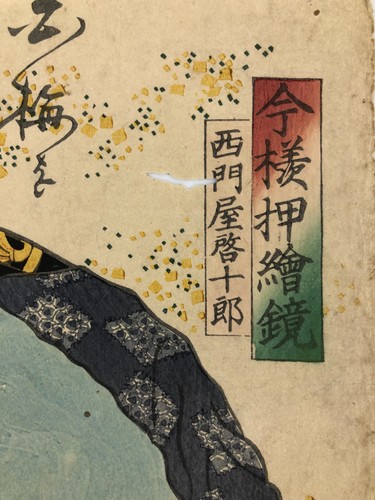 今様押繪鏡
西門屋啓十郎
梅